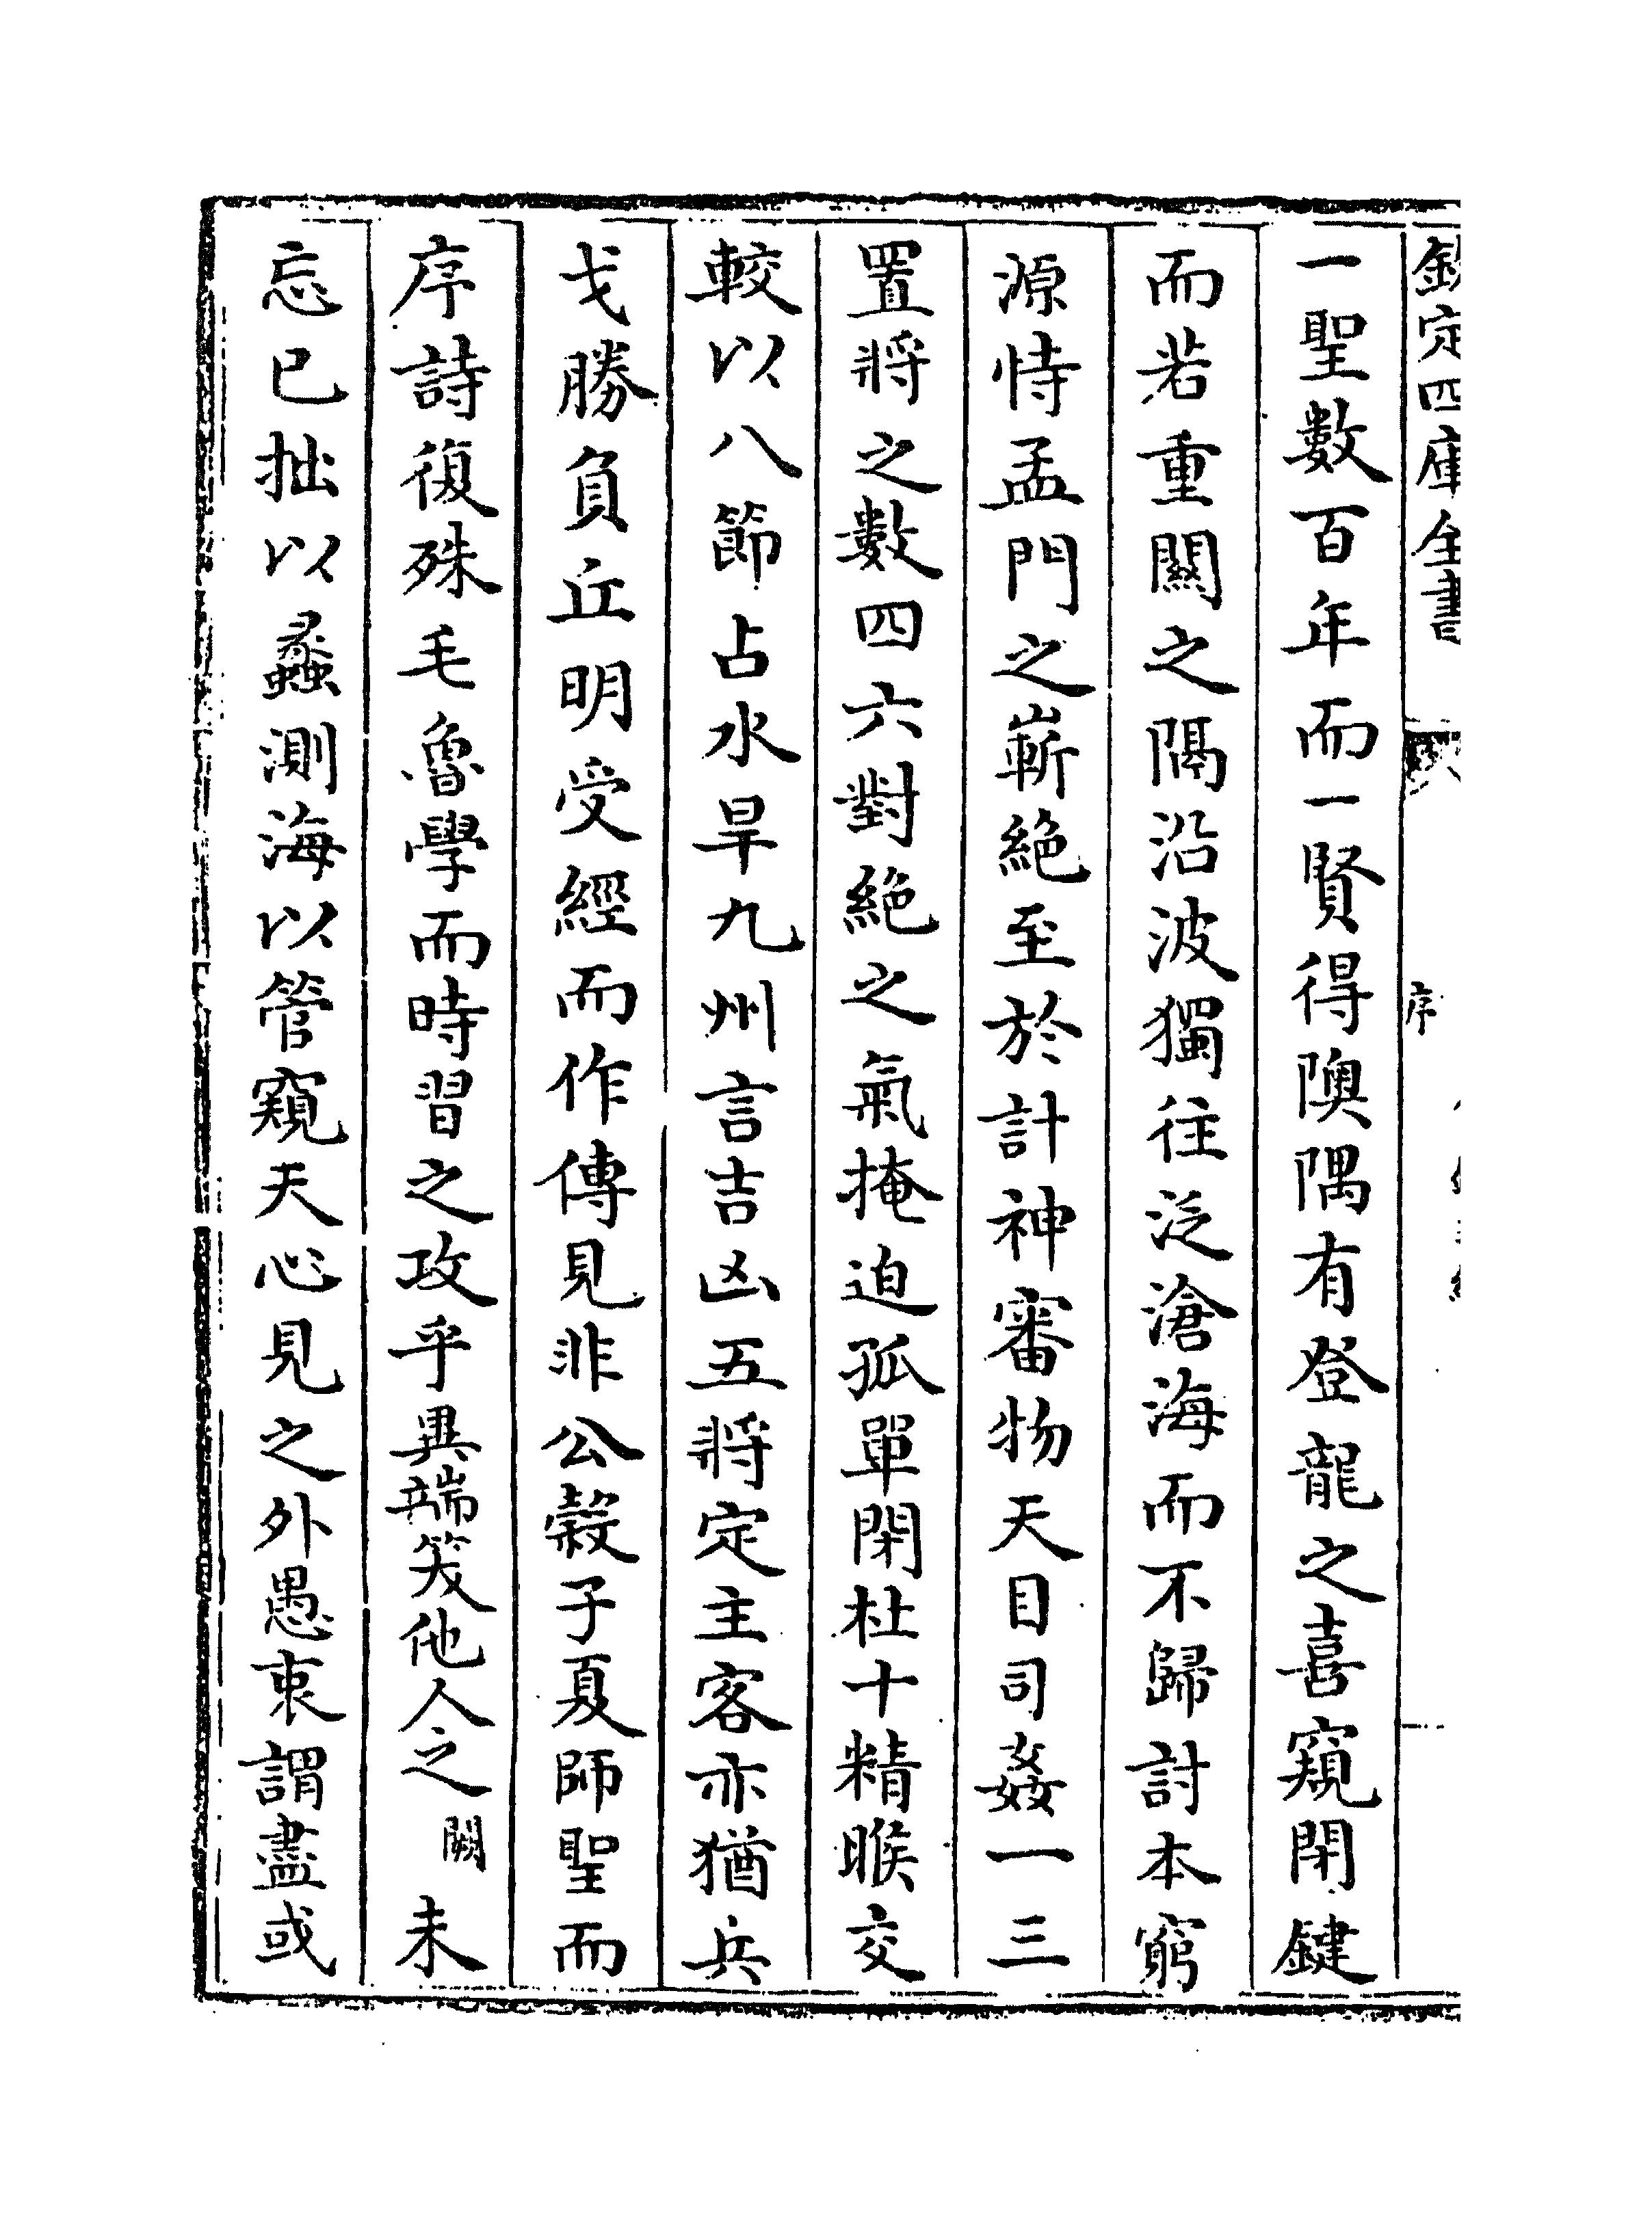 欽定四庫全書
序
一聖數百年而一賢得隩隅有登龍之喜窺閉鍵
而若重闗之隔沿波獨往泛滄海而不歸討本窮
源恃孟門之嶄絶至於計神審物天目司姦一三
置將之數四六對絶之氣掩迫孤單閉杜十精睺交
較以八節占水旱九州言吉凶五將定主客亦猶兵
戈勝負丘明受經而作傳見非公糓子夏師聖而
序詩復殊毛魯學而時習之攻乎異端笑他人之闕未
忘已拙以蠡測海以管窺天心見之外愚衷謂盡或